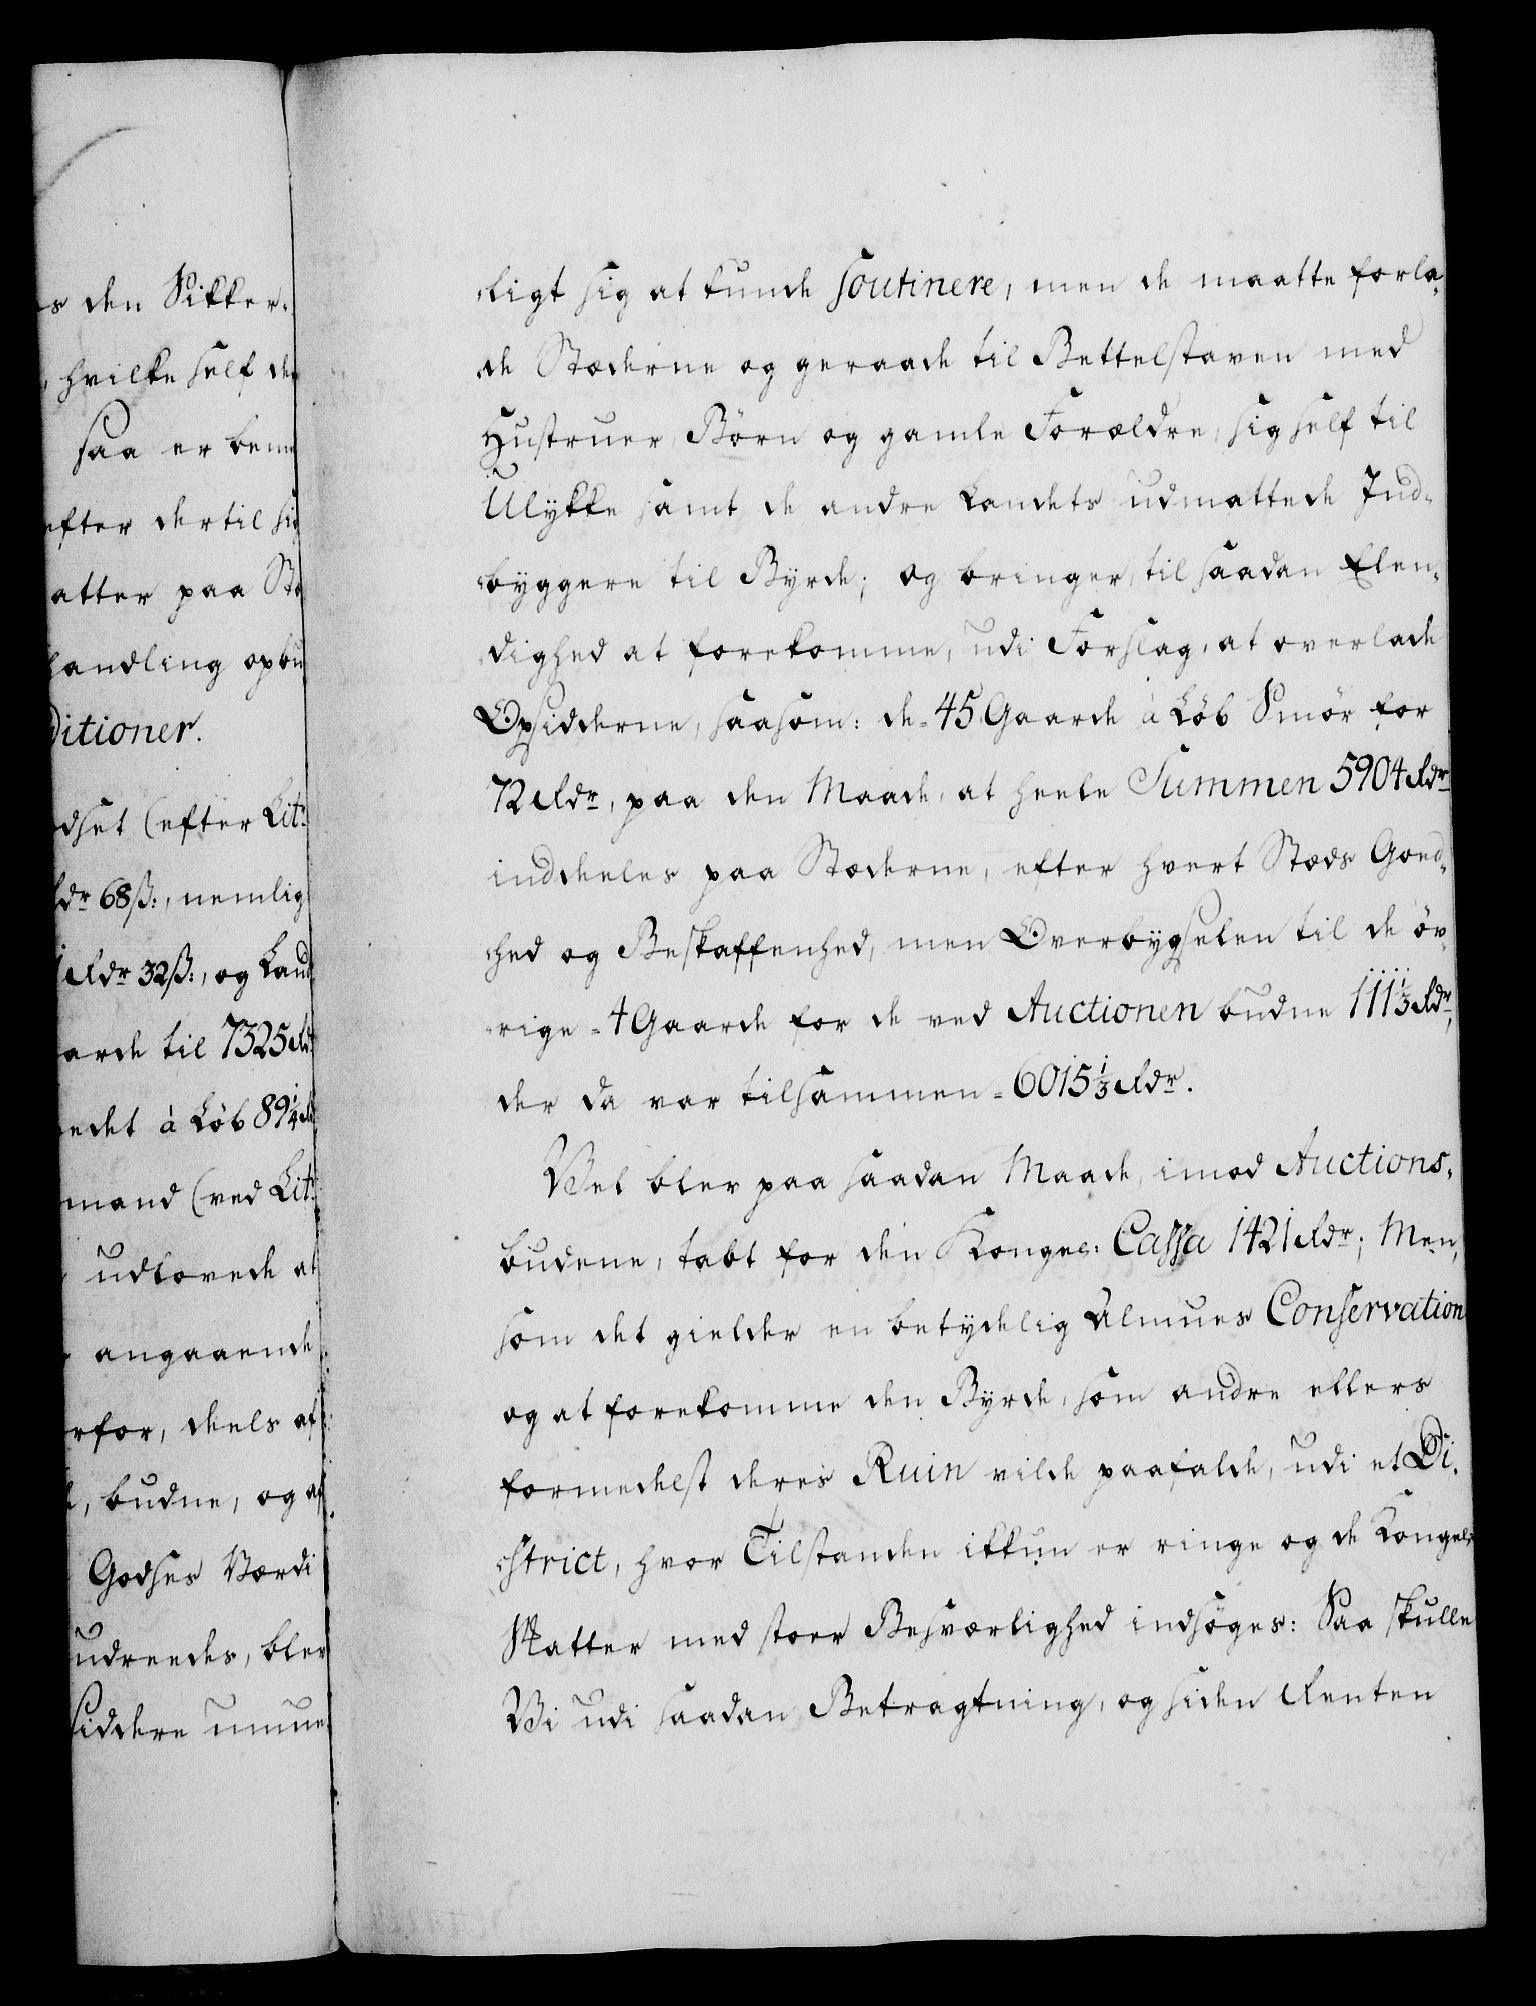 s den Sikker-
hvilke self de
saa er bem
efter dertil si
atter paa St
handling opbu
ditioner.
dset (efter Lit:
dr 68 ß:, nemlig
Rdr 32 ß:, og Land
arde til 7325 Rd
edet à Løb 89 1/4 R
mand (ved Lit:
udlovede at
angaaende
rfor, deels af
, budne, og af
Godses Værdi
udreedes, bler
siddere umue
ligt sig at kunde soutinere, men de maatte forla-
de Stæderne og geraade til Bettelstaven med
Hustruer, Børn og gamle Forældre, sig self til
Ulykke samt de andre Landets udmattede Ind-
byggere til Byrde; og bringer, til saadan Elen-
dighed at forekomme, udi Forslag, at overlade
Opsidderne, saasom: de 45 Gaarde à Løb Smør for
72 Rdr, paa den Maade, at heele Summen 5904 Rdr
inddeeles paa Stæderne, efter hvert Stæds Goed-
hed og Beskaffenhed, men Overbygselen til de øv-
rige 4 Gaarde for de ved Auctionen budne 111 1/3 Rdr,
der da var tilsammen 6015 1/3 Rdr.
Vel bler paa saadan Maade, imod Auctions-
budene, tabt for den Konges: Cassa 1421 Rdr; Men,
som det gielder en betydelig Almues Conservation
og at forekomme den Byrde, som andre ellers
formedelst deres Ruin vilde paafalde, udi et Di-
strict, hvor Tilstanden ikkun er ringe og de Kongel:
Skatter med stoer Besværlighed indsøges: Saa skulle
Vi udi saadan Betragtning, og siden Renten